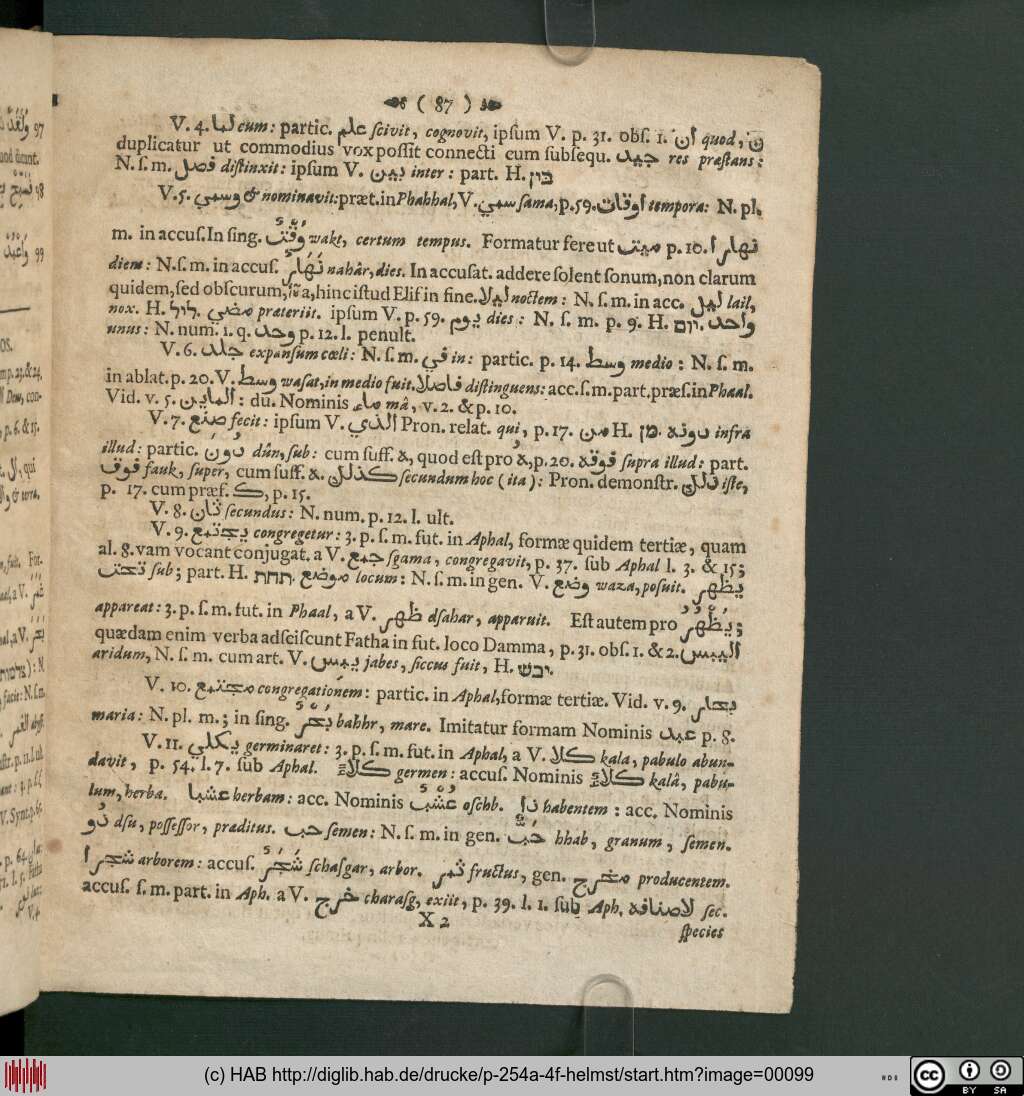 ( 87 )
V. 4. لما cum: partic. علم scivit, cognovit, ipsum V. p. 31. obs. 1. أن quod, ن
duplicatur ut commodius vox possit connecti cum subsequ. جيد res præstans:
N. s. m. فصل distinxit: ipsum V. بين inter: part. H. בין
V. 5. وسمي & nominavit: præt. in Phahhal, V. سمي sama, p. 59. اوقات tempora: N. pl.
m. in accus. In sing. وَقْتٌ wakt, certum tempus. Formatur fere ut ميت p. 10. نهارا
diem: N. s. m. in accus. نَهَارٌ nahâr, dies. In accusat. addere solent sonum, non clarum
quidem, sed obscurum, a, hinc istud Elif in fine. ليلا noctem: N. s. m. in acc. ليل lail,
nox. H. ליל. مضي præteriit. ipsum V. p. 59. يوم dies: N. s. m. p. 9. H. יום. واحد
unus: N. num. 1. q. وحد p. 12. l. penult.
V. 6. جلد expansum cœli: N. s. m. في in: partic. p. 14. وسط medio: N. s. m.
in ablat. p. 20. V. وسط wasat, in medio fuit. فاصلا distinguens: acc. s. m. part. præs. in Phaal.
Vid. v. 5. الماين: du. Nominis ماء mâ, v. 2. & p. 10.
V. 7. صنع fecit: ipsum V. الذي Pron. relat. qui, p. 17. من H. מן. دونه infra
illud: partic. دُونَ dûn, sub: cum suff. ه, quod est pro ه, p. 20. فوقه supra illud: part.
فوق fauk, super, cum suff. ه. كذلك secundum hoc (ita): Pron. demonstr. ذلك iste,
p. 17. cum præf. ك, p. 15.
V. 8. ثان secundus: N. num. p. 12. l. ult.
V. 9. يجتمع congregetur: 3. p. s. m. fut. in Aphal, formæ quidem tertiæ, quam
al. 8. vam vocant conjugat. a V. جمع sgama, congregavit, p. 37. sub Aphal l. 3. & 15;
تحت sub; part. H. תחת. موضع locum: N. s. m. in gen. V. وضع waza, posuit. يظهر
appareat: 3. p. s. m. fut. in Phaal, a V. ظهر dsahar, apparuit. Est autem pro يَظْهُرُ;
quædam enim verba adsciscunt Fatha in fut. loco Damma, p. 31. obs. 1. & 2. اليبس
aridum, N. s. m. cum art. V. يبس jabes, siccus fuit, H. יבש.
V. 10. مجتمع congregationem: partic. in Aphal, formæ tertiæ. Vid. v. 9. بحار
maria: N. pl. m.; in sing. بَحْرٌ bahhr, mare. Imitatur formam Nominis عبد p. 8.
V. 11. يكلي germinaret: 3. p. s. m. fut. in Aphal, a V. كلا kala, pabulo abun-
davit, p. 54. l. 7. sub Aphal. كلاء germen: accus. Nominis كلاء kalâ, pabu-
lum, herba. عشبا herbam: acc. Nominis عُشْبٌ oschb. ذا habentem: acc. Nominis
ذو dsu, possessor, præditus. حب semen: N. s. m. in gen. حَبٌّ hhab, granum, semen.
شجرا arborem: accus. شَجَرٌ schasgar, arbor. ثمر fructus, gen. مخرج producentem.
accus. s. m. part. in Aph. a V. خرج charasg, exiit, p. 39. l. 1. sub Aph. لاصنافه sec.
X 2
species
(c) HAB http://diglib.hab.de/drucke/p-254a-4f-helmst/start.htm?image=00099
CC BY SA